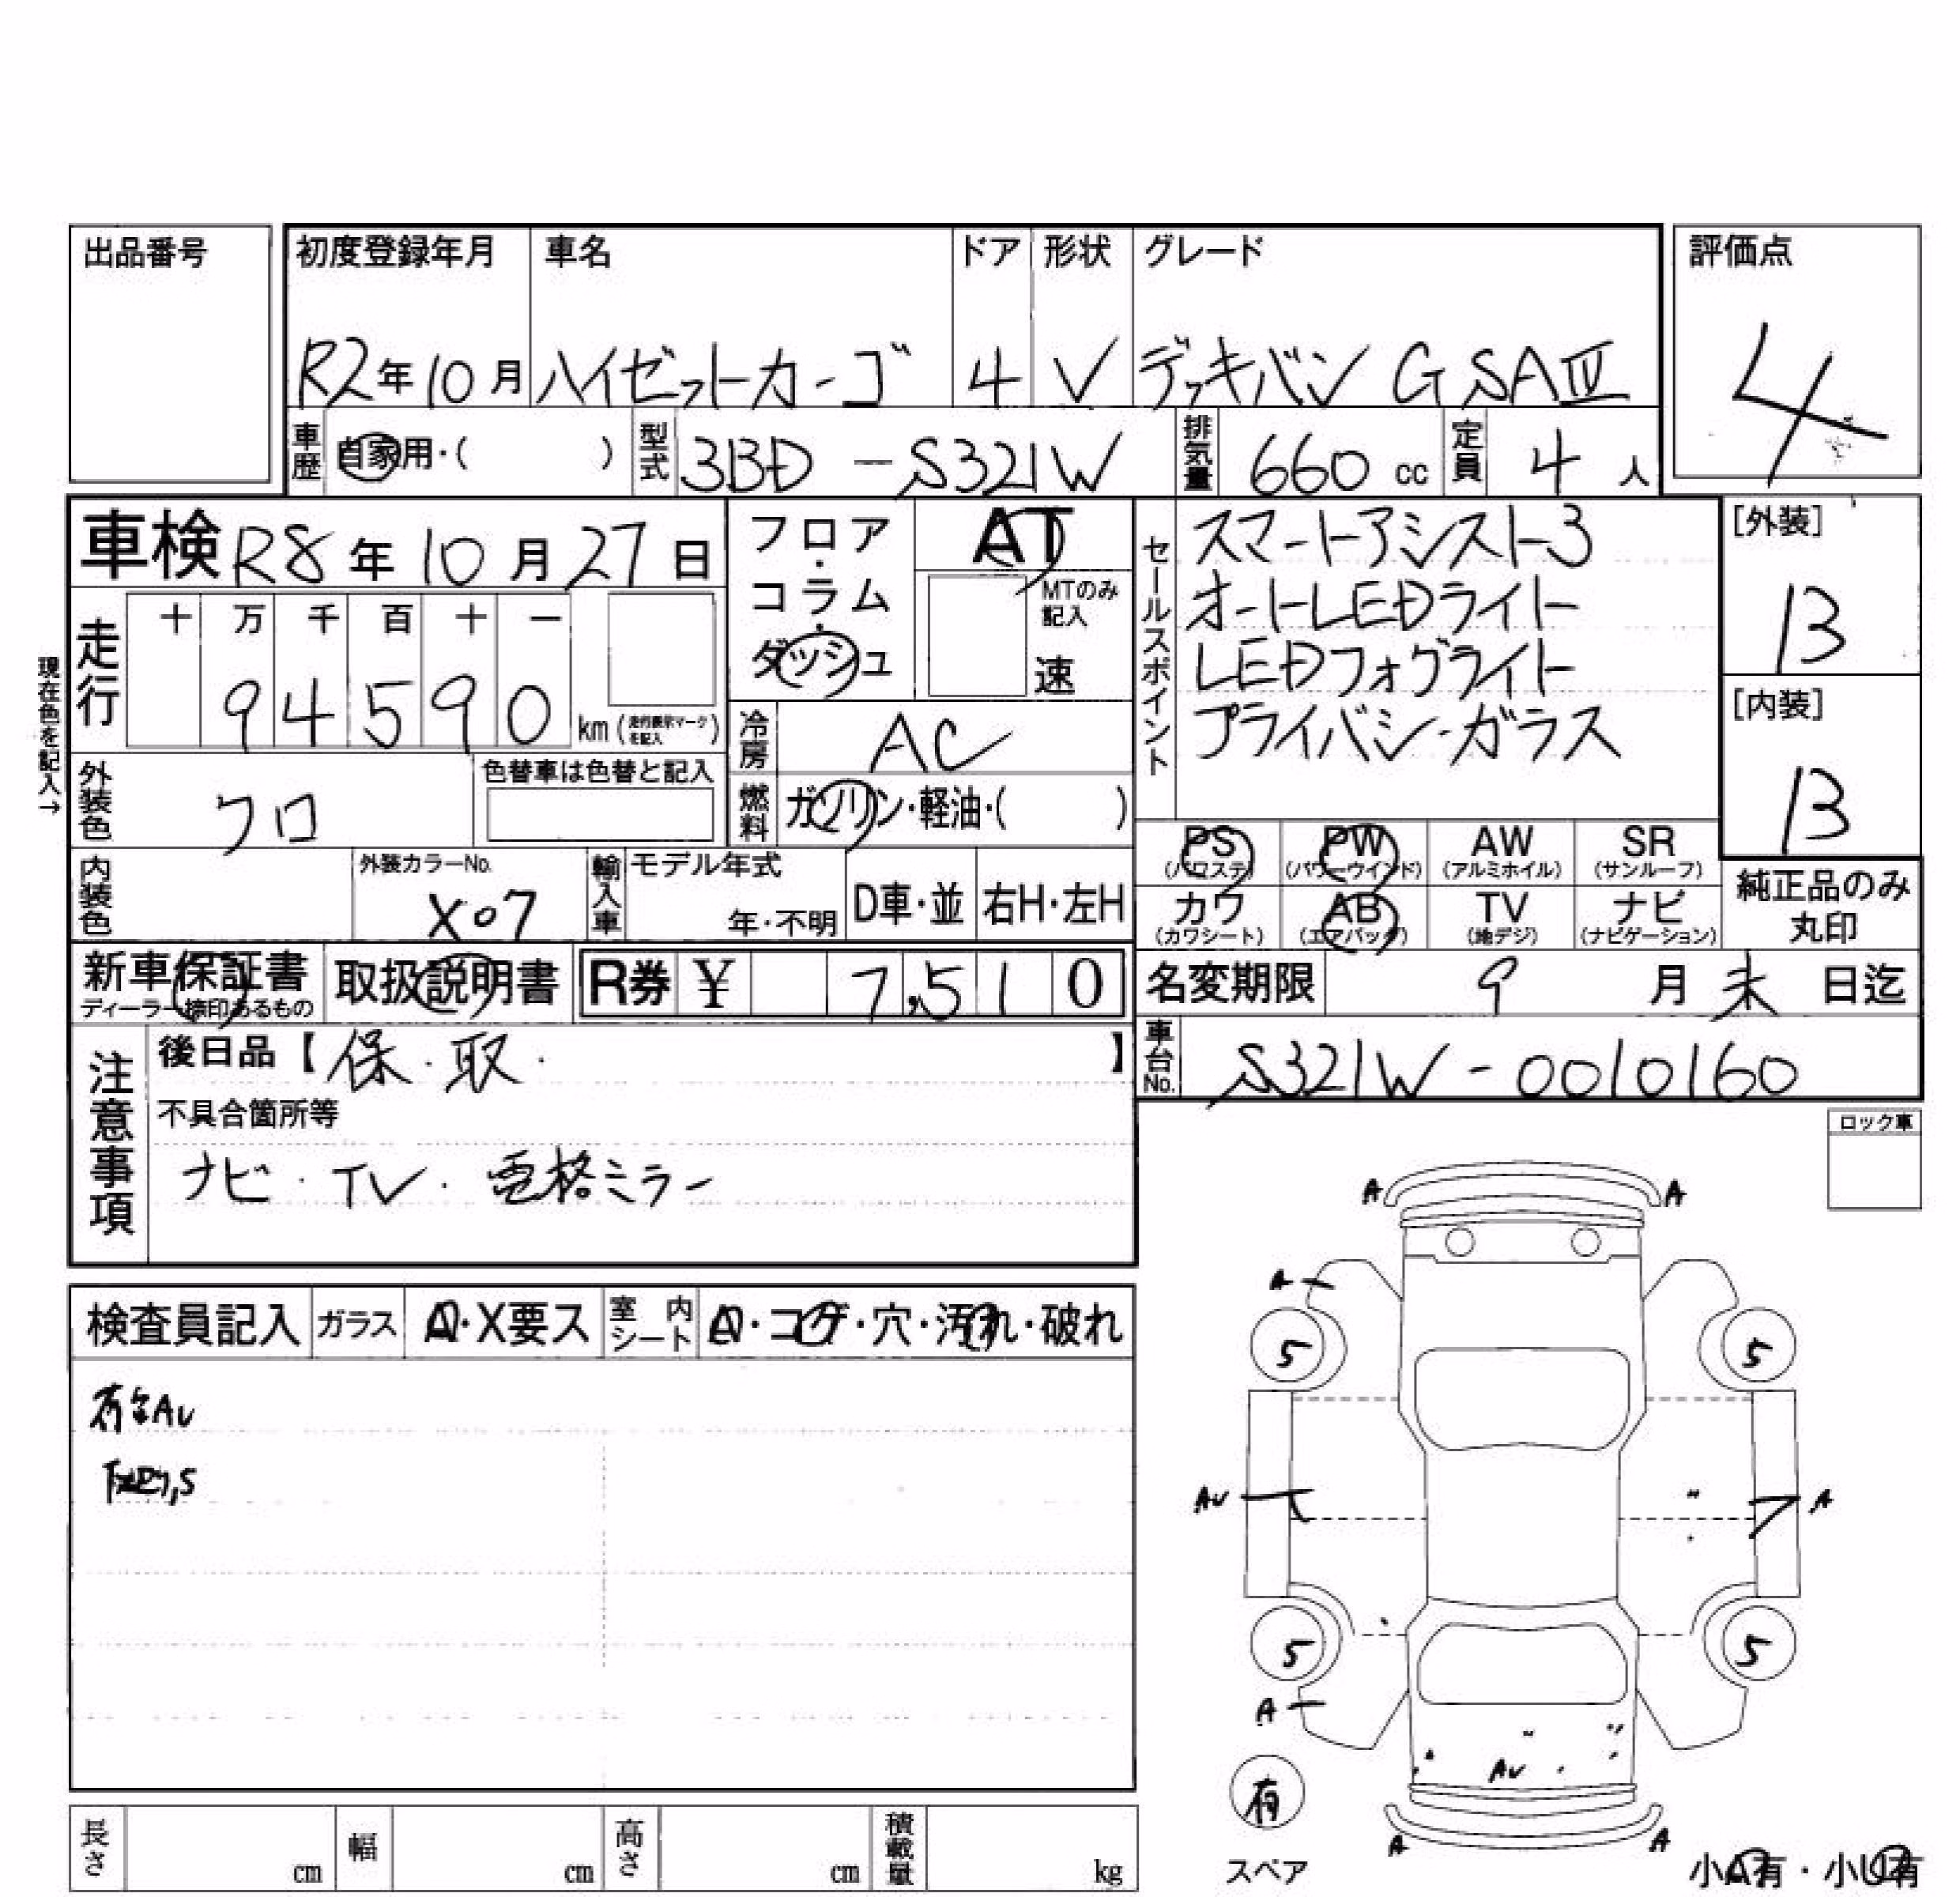 出品番号
初度登録年月 車名 ドア 形状 グレード 評価点
R2年10月 ハイゼットカーゴ 4 V デッキバン G SAⅢ 4
車歴 自家用・( ) 型式 3BD-S321W 排気量 660 cc 定員 4 人
車検 R8年10月27日
フロア・コラム・ダッシュ AT
MTのみ記入
速
セールスポイント
スマートアシスト3
オートLEDライト
LEDフォグライト
プライバシーガラス
[外装]
13
[内装]
13
現在色を記入→
走行 十 万 千 百 十 一
94590 km (走行表示マークを記入)
冷房 AC
燃料 ガソリン・軽油・( )
外装色 クロ 色替車は色替と記入
内装色 外装カラーNo. X07
輸入車 モデル年式 年・不明 D車・並 右H・左H
PS (パワステ) PW (パワーウインド) AW (アルミホイル) SR (サンルーフ)
カワ (カワシート) AB (エアバッグ) TV (地デジ) ナビ (ナビゲーション)
純正品のみ丸印
新車保証書 ディーラー捺印あるもの 取扱説明書 R券 ¥ 7,510
名変期限 9月末日迄
車台No. S321W-0010160
注意事項
後日品【保・取・】
不具合箇所等
ナビ・TV・電格ミラー
ロック車
検査員記入 ガラス A・X要ス 室内シート A・コゲ・穴・汚れ・破れ
A A
A
5 5
AU A
5 5
A
AU
A A
有
スペア
小A有・小U有
長さ cm 幅 cm 高さ cm 積載量 kg